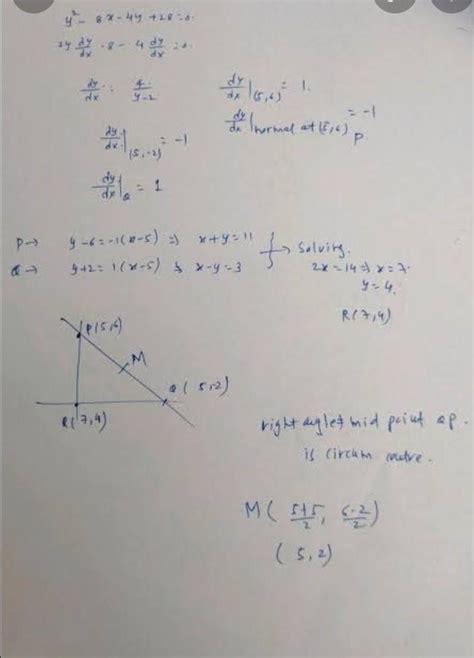 y² - 8x - 4y + 28 = 0.
2y dy/dx - 8 - 4 dy/dx = 0.
dy/dx = 4/(y-2)
dy/dx|(5,6) = 1.
dy/dx|normal at (5,6) P = -1
dy/dx|(5,-2) = -1
dy/dx|Q = 1
P → y-6 = -1(x-5) ⇒ x+y = 11
Q → y+2 = 1(x-5) ⇒ x-y = 3
} → Solving.
2x = 14 ⇒ x = 7.
y = 4.
R(7,4)
P(5,6)
M
Q(5,2)
R(7,4)
right angle mid point QP.
is circum centre.
M( (5+5)/2, (6-2)/2 )
(5,2)